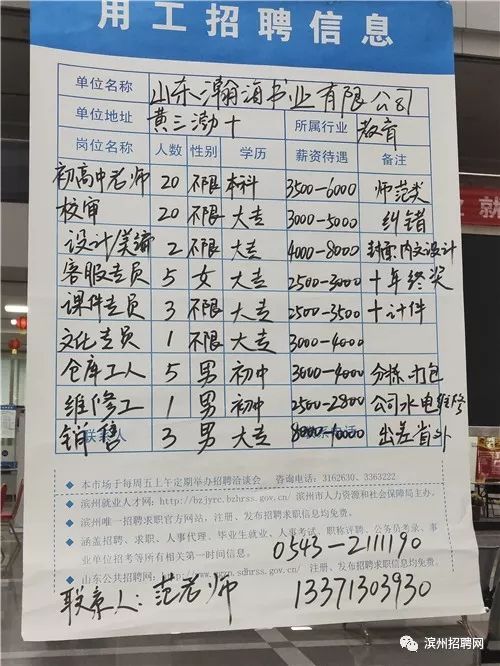 用工招聘信息
单位名称 山东瀚海书业有限公司
单位地址 黄三渤十 所属行业 教育
岗位名称 人数 性别 学历 薪资待遇 备注
初高中老师 20 不限 本科 3500-6000 师范类
校审 20 不限 大专 3000-5000 纠错
设计/美编 2 不限 大专 4000-8000 封面.内文设计
客服专员 5 女 大专 2500-3000 +年终奖
课件专员 3 不限 大专 2500-3500 +计件
文化专员 1 不限 大专 3000-4000
仓库工人 5 男 初中 3000-4000 分拣.打包
维修工 1 男 初中 2500-2800 公司水电维修
销售 3 男 大专 8000-10000 出差省外
联系人
◆ 本市场于每周五上午定期举办招聘洽谈会 咨询电话:3162630、3363222
◆ 滨州就业人才网:http://bzjyrc.bzhrss.gov.cn/ 滨州市人力资源和社会保障局主办。
◆ 滨州唯一招聘求职官方网站,注册、发布招聘求职信息均免费。
◆ 涵盖招聘、求职、人事代理、毕业生就业、人事考试、职称评聘、公务员考录、事
业单位招考等所有相关第一时间信息。
0543-2111190
◆ 山东公共招聘网:
sdhrss.gov.cn/ 注册、发布招聘求职信息均免费。
联系人:范老师 13371303930
滨州招聘网